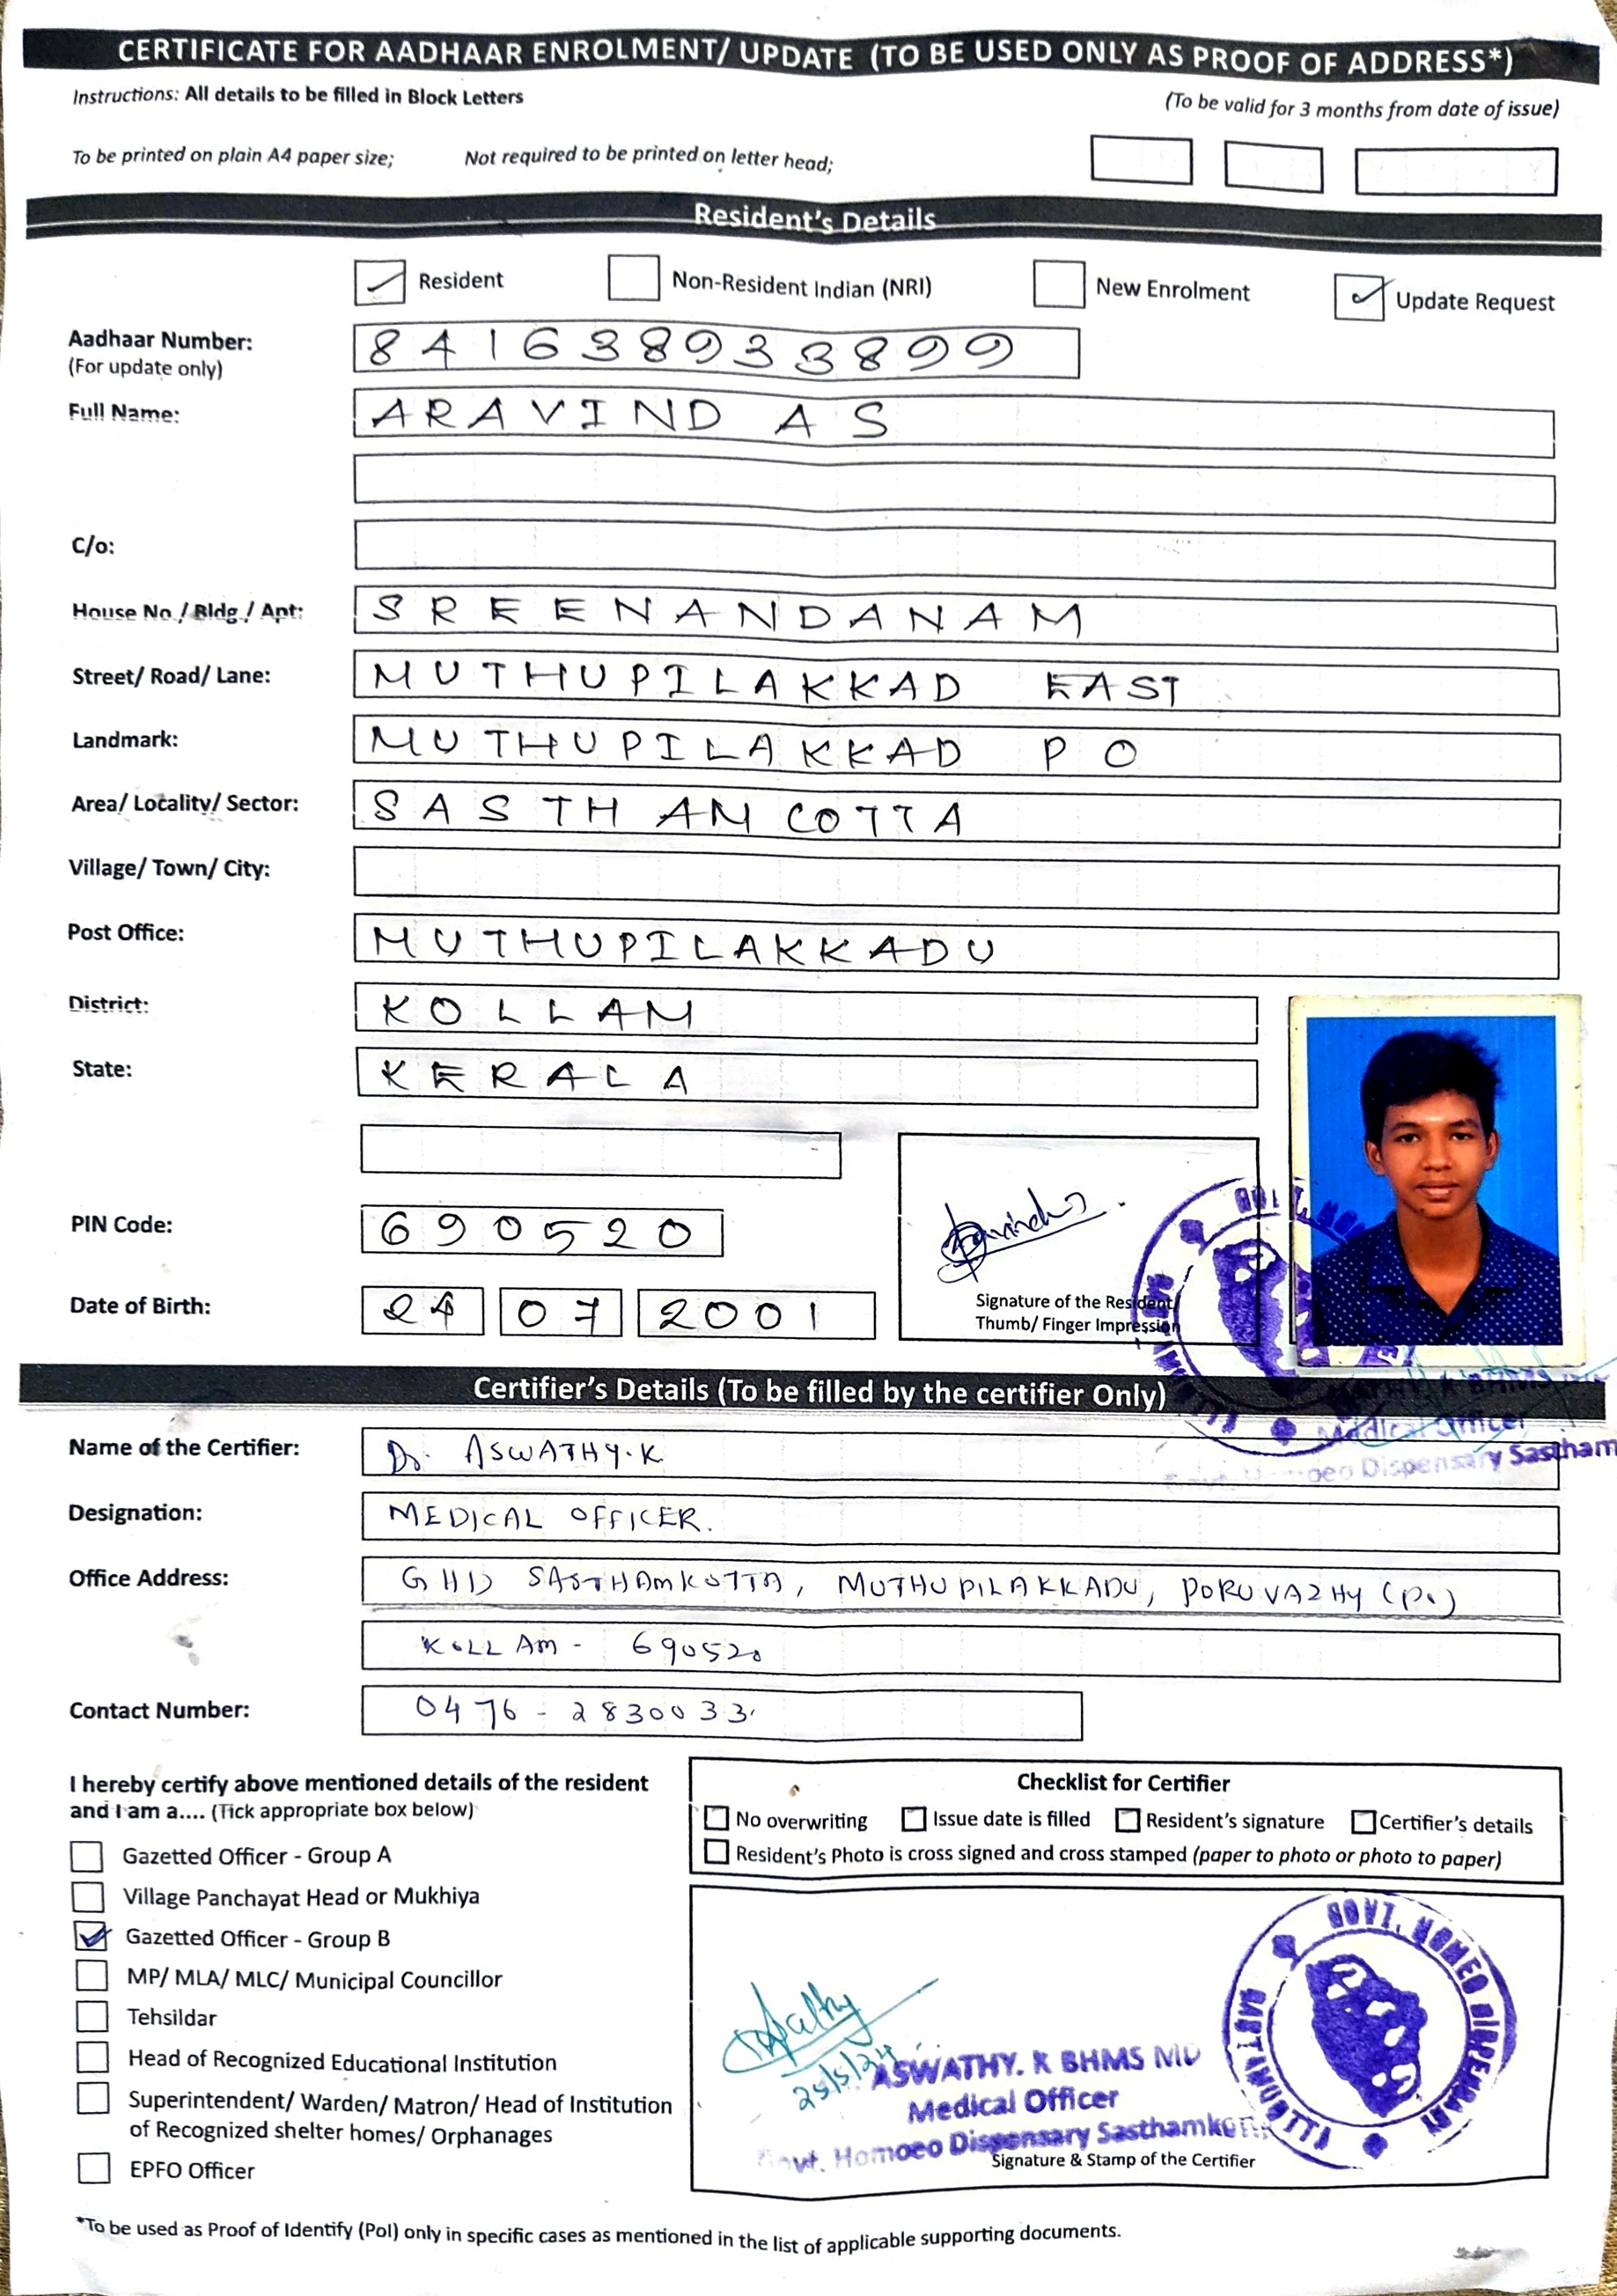 CERTIFICATE FOR AADHAAR ENROLMENT/ UPDATE (TO BE USED ONLY AS PROOF OF ADDRESS*)
Instructions: All details to be filled in Block Letters
(To be valid for 3 months from date of issue)
To be printed on plain A4 paper size; Not required to be printed on letter head;
Resident's Details
Resident Non-Resident Indian (NRI) New Enrolment Update Request
Aadhaar Number: 841638933899
(For update only)
Full Name: ARAVIND A S
C/o:
House No./ Bldg./ Apt: SREENANDANAM
Street/ Road/ Lane: MUTHUPILAKKAD EAST
Landmark: MUTHUPILAKKAD P O
Area/ Locality/ Sector: SASTHAMCOTTA
Village/ Town/ City:
Post Office: MUTHUPILAKKADU
District: KOLLAM
State: KERALA
PIN Code: 690520
Date of Birth: 24 07 2001
Signature of the Resident/
Thumb/ Finger Impression
Certifier's Details (To be filled by the certifier Only)
Medical Officer
Dispensary Sastham
Name of the Certifier: Dr. ASWATHY.K
Designation: MEDICAL OFFICER.
Office Address: GHD SASTHAMKOTTA, MUTHUPILAKKADU, PORUVAZHY (PO)
KOLLAM - 690520
Contact Number: 0476 - 2830033
I hereby certify above mentioned details of the resident
and I am a.... (Tick appropriate box below)
Gazetted Officer - Group A
Village Panchayat Head or Mukhiya
Gazetted Officer - Group B
MP/ MLA/ MLC/ Municipal Councillor
Tehsildar
Head of Recognized Educational Institution
Superintendent/ Warden/ Matron/ Head of Institution
of Recognized shelter homes/ Orphanages
EPFO Officer
Checklist for Certifier
No overwriting Issue date is filled Resident's signature Certifier's details
Resident's Photo is cross signed and cross stamped (paper to photo or photo to paper)
GOVT. HOMEO DISPENSARY
25/5/24
ASWATHY. K BHMS MD
Medical Officer
Govt. Homoeo Dispensary
Signature & Stamp of the Certifier
*To be used as Proof of Identify (PoI) only in specific cases as mentioned in the list of applicable supporting documents.